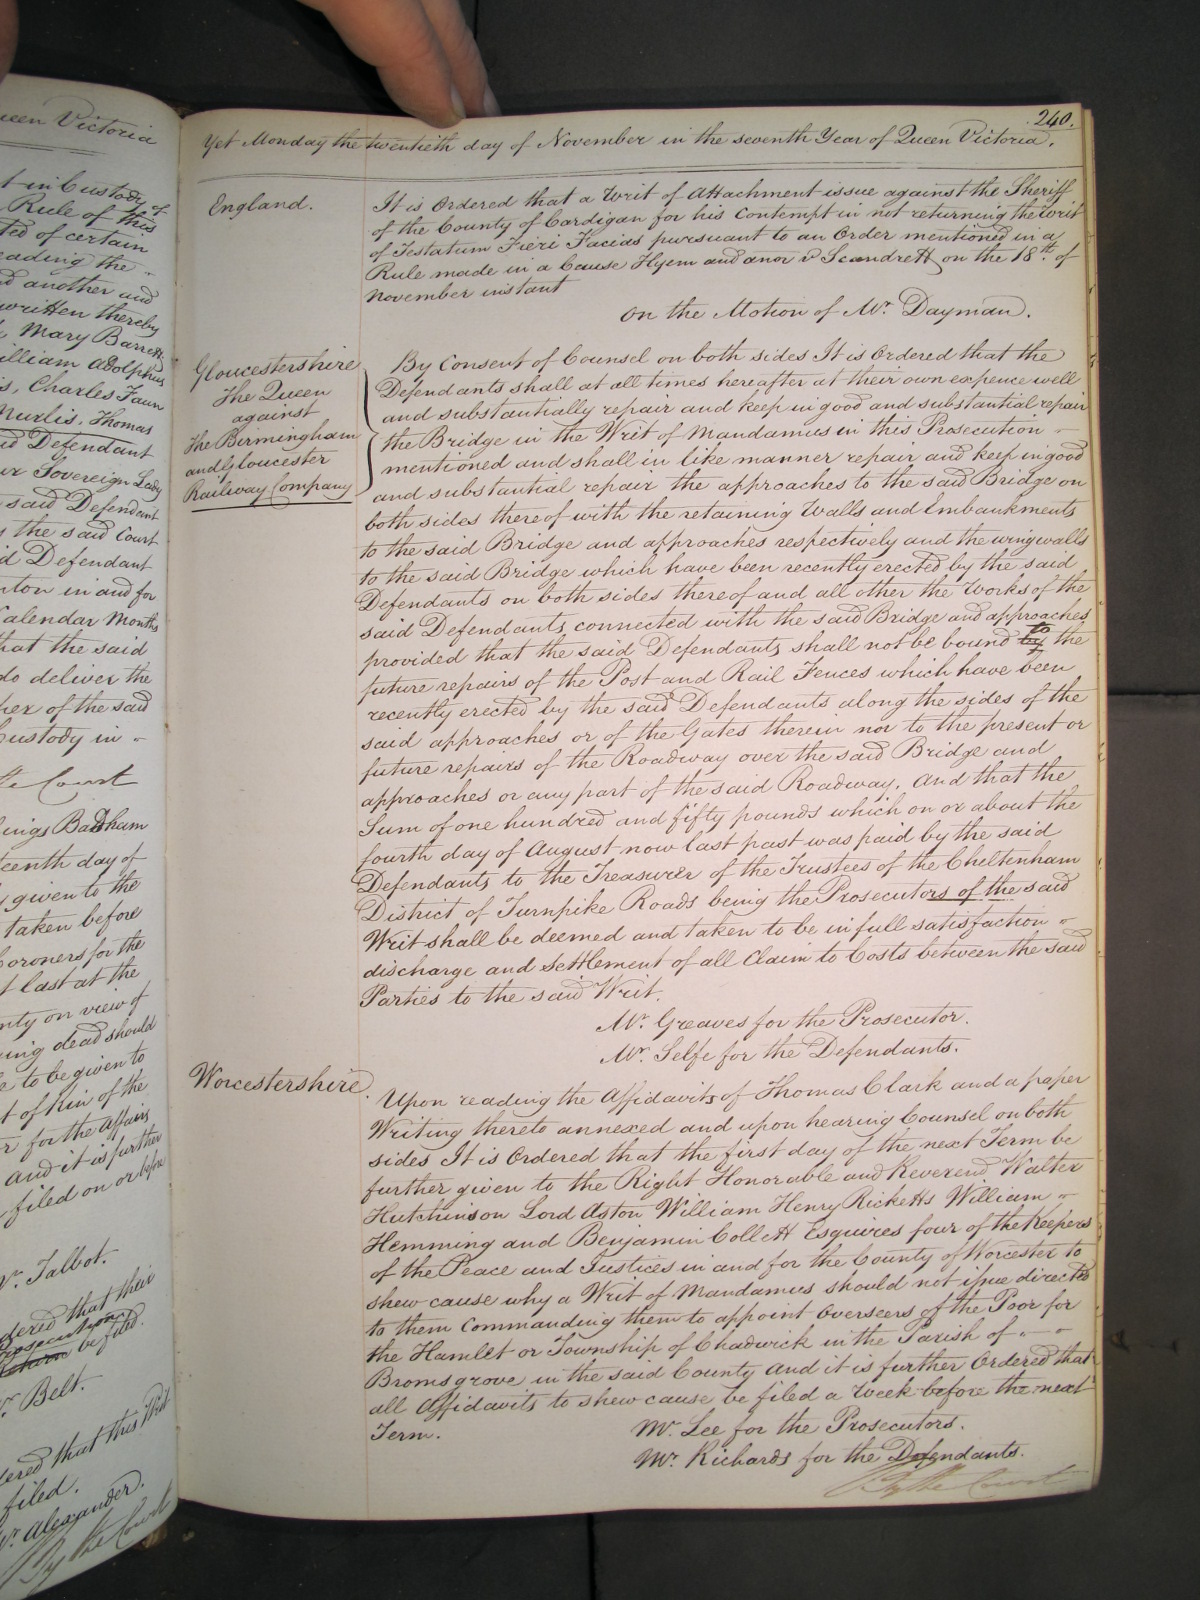 240.
Yet Monday the twentieth day of November in the seventh Year of Queen Victoria.
England.
It is Ordered that a Writ of Attachment issue against the Sheriff
of the County of Cardigan for his Contempt in not returning the Writ
of Testatum Fieri Facias pursuant to an Order mentioned in a
Rule made in a Cause Hyem and anor v Scandrett on the 18th of
November instant
On the Motion of Mr. Dayman.
Gloucestershire
The Queen
against
The Birmingham
and Gloucester
Railway Company
By Consent of Counsel on both sides It is Ordered that the
Defendants shall at all times hereafter at their own expence well
and substantially repair and keep in good and substantial repair
the Bridge in the Writ of Mandamus in this Prosecution
mentioned and shall in like manner repair and keep in good
and substantial repair the approaches to the said Bridge on
both sides thereof with the retaining Walls and Embankments
to the said Bridge and approaches respectively and the wing walls
to the said Bridge which have been recently erected by the said
Defendants on both sides thereof and all other the Works of the
said Defendants connected with the said Bridge and approaches
provided that the said Defendants shall not be bound to the
future repairs of the Post and Rail Fences which have been
recently erected by the said Defendants along the sides of the
said approaches or of the Gates therein nor to the present or
future repairs of the Roadway over the said Bridge and
approaches or any part of the said Roadway. And that the
Sum of one hundred and fifty pounds which on or about the
fourth day of August now last past was paid by the said
Defendants to the Treasurer of the Trustees of the Cheltenham
District of Turnpike Roads being the Prosecutors of the said
Writ shall be deemed and taken to be in full satisfaction
discharge and settlement of all Claim to Costs between the said
Parties to the said Writ.
Mr. Greaves for the Prosecutor.
Mr. Selfe for the Defendants.
Worcestershire.
Upon reading the Affidavits of Thomas Clark and a paper
Writing thereto annexed and upon hearing Counsel on both
sides It is Ordered that the first day of the next Term be
further given to the Right Honorable and Reverend Walter
Hutchinson Lord Aston William Henry Ricketts William
Hemming and Benjamin Collett Esquires four of the Keepers
of the Peace and Justices in and for the County of Worcester to
shew cause why a Writ of Mandamus should not issue directed
to them Commanding them to appoint Overseers of the Poor for
the Hamlet or Township of Chadwick in the Parish of
Bromsgrove in the said County And it is further Ordered that
all Affidavits to shew cause be filed a Week before the next
Term.
Mr. Lee for the Prosecutors.
Mr. Richards for the Defendants.
By the Court
Queen Victoria
t in Custody of
Rule of this
ted of certain
eading the
d another and
written thereby
Mary Barrett
illiam Adolphus
is, Charles Faun
Thomas
id Defendant
ur Sovereign Lady
said Defendant
s the said Court
id Defendant
nton in and for
Calendar Months
hat the said
do deliver the
per of the said
Custody in
the Court
Badham
teenth day of
y given to the
taken before
Coroners for the
t last at the
nty on view of
ying dead should
e to be given to
t of Kin of the
r for the Affairs
And it is further
filed on or before
Mr. Talbot.
dered that their
be filed.
Mr. Belt.
dered that this Writ
filed.
Mr. Alexander.
By the Court